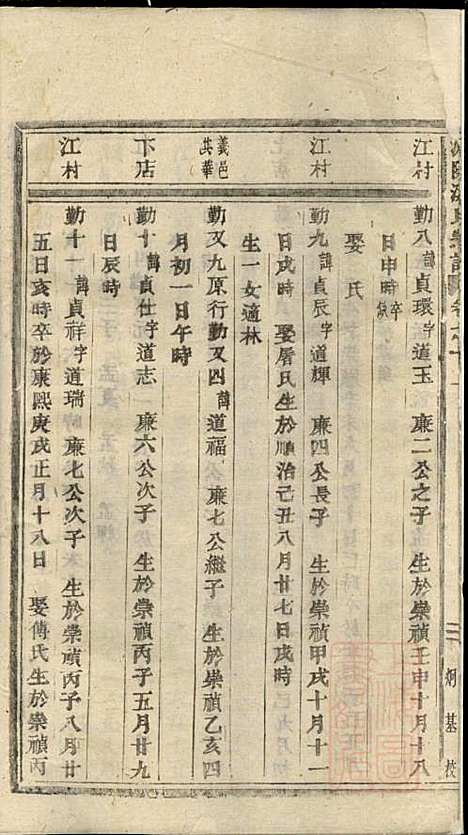 江村
勤八諱貞環字道玉 廉二公之子 生於崇禎壬申十月十八
日申時卒缺
娶氏
江村
勤九諱貞辰字道輝 廉四公長子 生於崇禎甲戌十月十一
日戌時 娶屠氏生於順治己丑八月廿七日戌時
生一女適林
義邑
洪華
勤又九原行勤又四諱道福 廉七公繼子 生於崇禎乙亥四
月初一日午時
下店
勤十諱貞仕字道志 廉六公次子 生於崇禎丙子五月廿九
日辰時
江村
勤十一諱貞祥字道瑞 廉七公次子 生於崇禎丙子八月廿
五日亥時卒於康熙庚戌正月十八日 娶傅氏生於崇禎丙